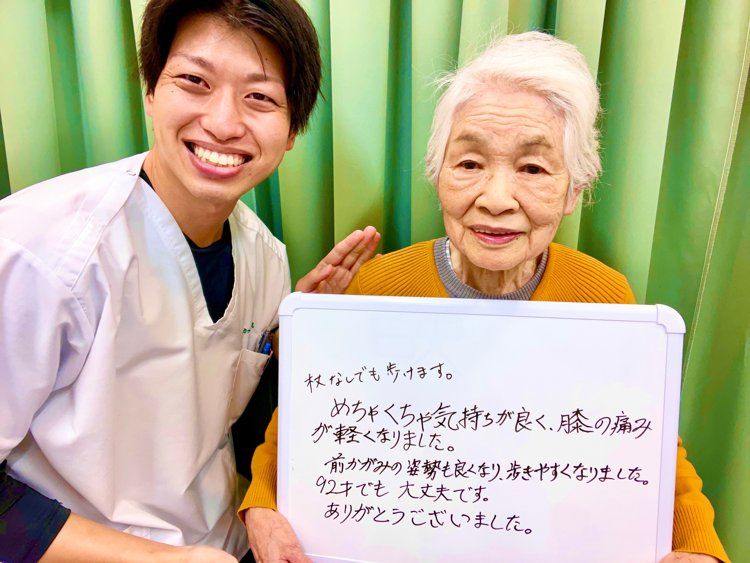 杖なしでも歩けます。
めちゃくちゃ気持ちが良く、膝の痛み
が軽くなりました。
前かがみの姿勢も良くなり、歩きやすくなりました。
92才でも大丈夫です。
ありがとうございました。